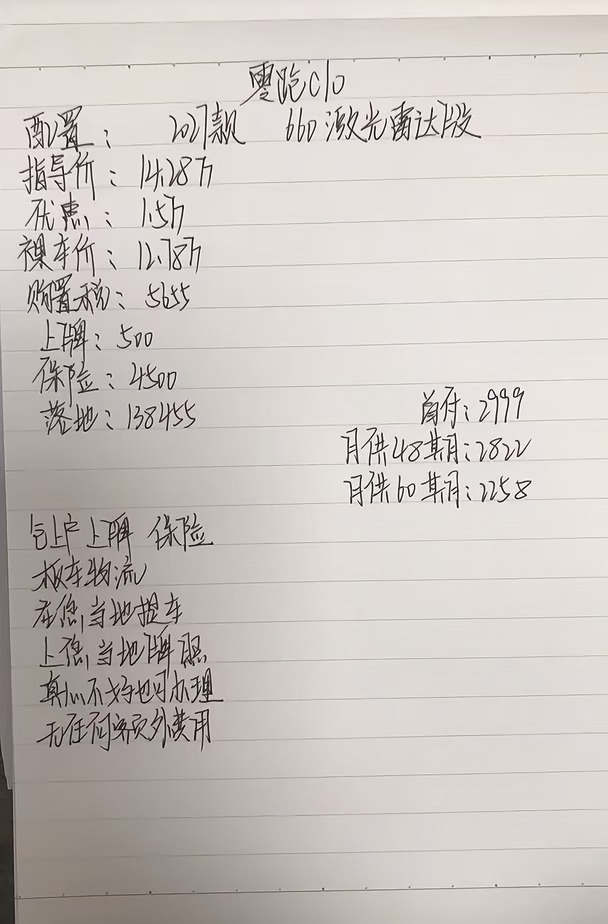 零跑C10
配置： 2027款 660激光雷达版
指导价：14.28万
优惠：1.5万
裸车价：12.78万
购置税：5655
上牌：500
保险：4500
落地：138455
首付：2999
月供48期月：2822
月供60期月：2258
包上户 上牌 保险
板车物流
在您当地提车
上您当地牌照
真心不好也可办理
无任何额外费用